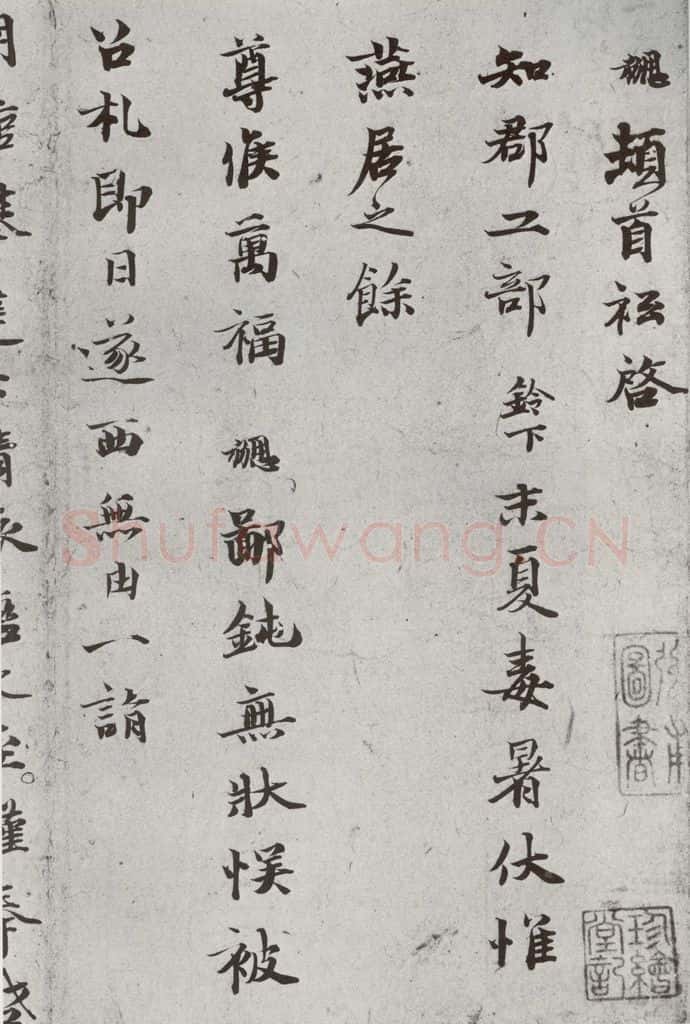 勰頓首祗啓
知郡工部鈴下末夏毒暑伏惟
燕居之餘
尊候萬福勰鄙鈍無狀悮被
召札即日遂西無由一詣
圖書
珍繪堂記
Shufawang.CN